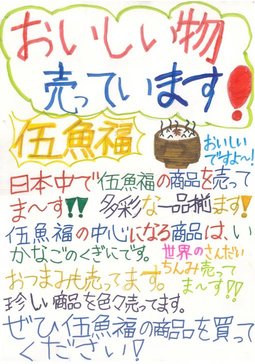 おいしい物
売っています!
伍魚福
おいしい
ですよ〜!
日本中で伍魚福の商品を売って
ま〜す!! 多彩な一品揃います!
伍魚福の中心になる商品は、い
かなごのくぎにです。
世界のさんだい
ちんみ売って
ま〜す!!
おつまみも売ってます。
珍しい商品を色々売ってます。
ぜひ伍魚福の商品を買って
ください!